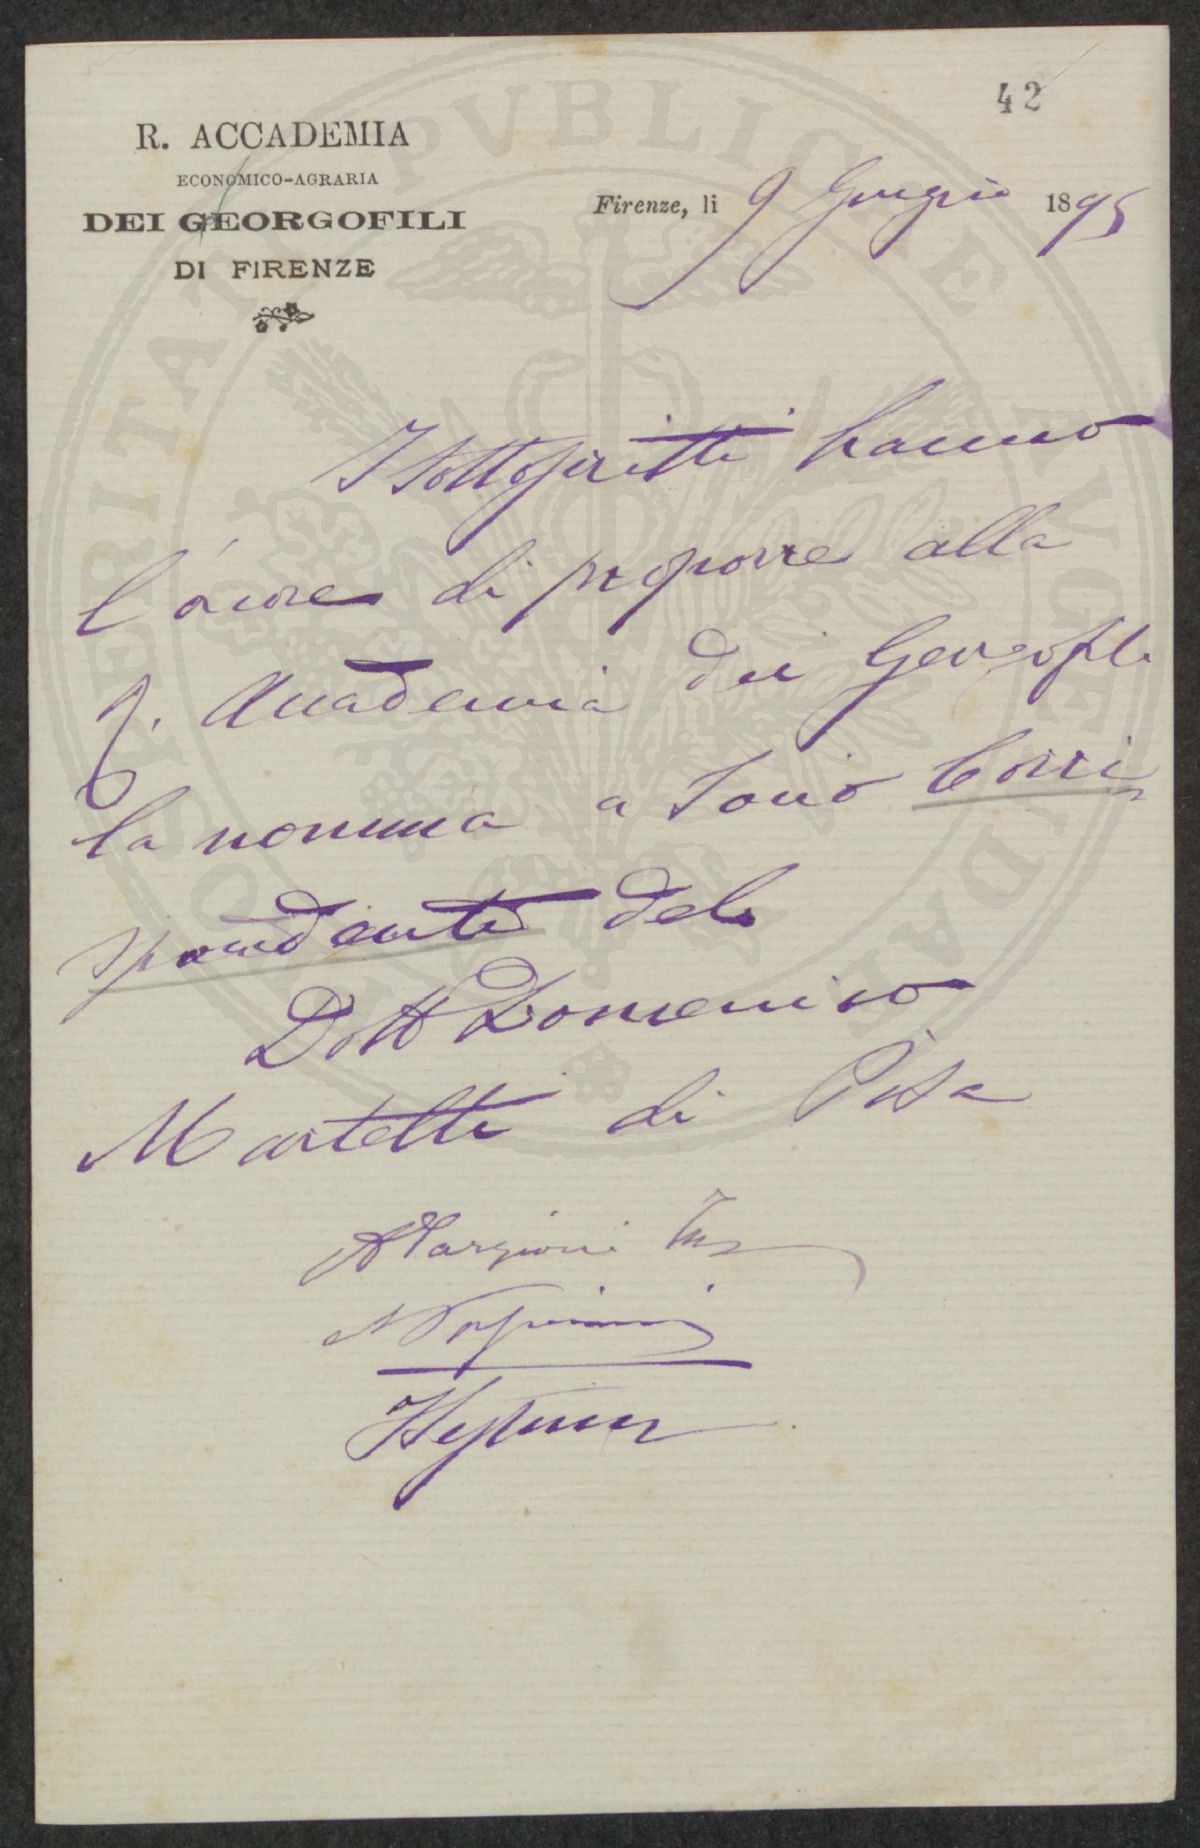 42
R. ACCADEMIA
ECONOMICO-AGRARIA
DEI GEORGOFILI
DI FIRENZE
Firenze, li 9 Giugno 1895
I sottoscritti hanno
l'onore di proporre alla
R. Accademia dei Georgofili
la nomina a Socio Corri
spondente del
Dott Domenico
Martelli di Pisa
A Targioni Tozz